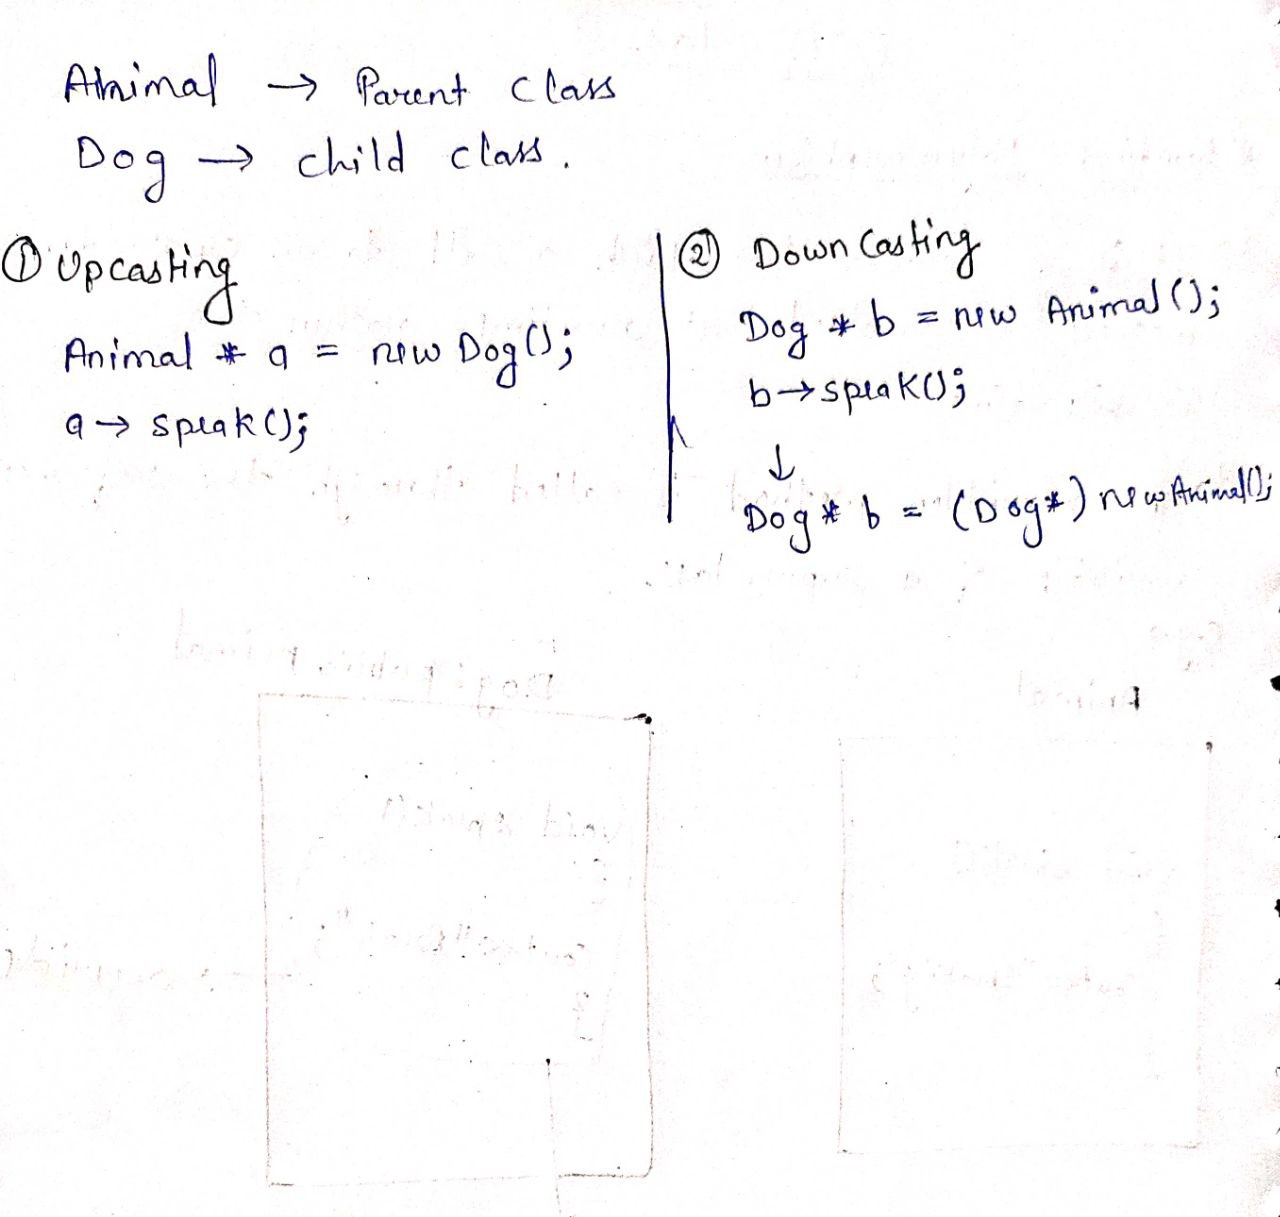 Animal → Parent class
Dog → child class.
① Upcasting
Animal * a = new Dog();
a → speak();
② Down Casting
Dog * b = new Animal();
b → speak();
↓
Dog * b = (Dog*) new Animal();